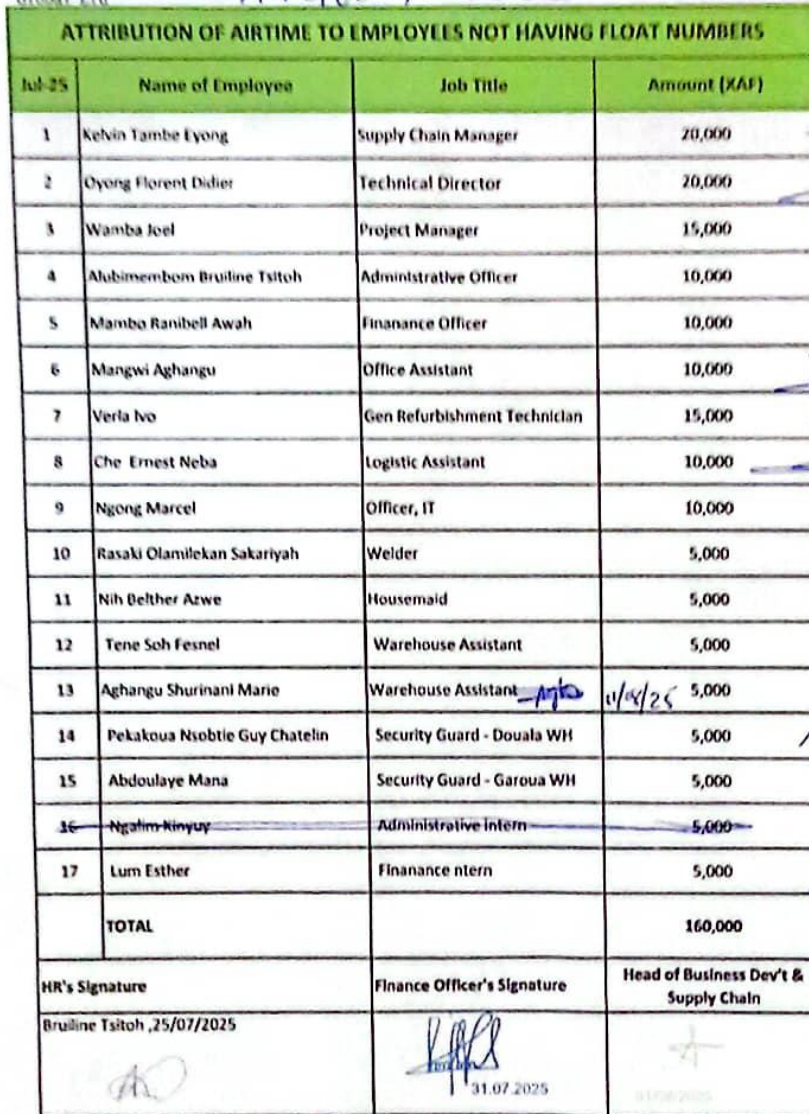 ATTRIBUTION OF AIRTIME TO EMPLOYEES NOT HAVING FLOAT NUMBERS
Jul-25 Name of Employee Job Title Amount (XAF)
1 Kelvin Tambe Eyong Supply Chain Manager 20,000
2 Oyong Florent Didier Technical Director 20,000
3 Wamba Joel Project Manager 15,000
4 Alubimembom Bruiline Tsitoh Administrative Officer 10,000
5 Mambo Ranibell Awah Finanance Officer 10,000
6 Mangwi Aghangu Office Assistant 10,000
7 Verla Ivo Gen Refurbishment Technician 15,000
8 Che Ernest Neba Logistic Assistant 10,000
9 Ngong Marcel Officer, IT 10,000
10 Rasaki Olamilekan Sakariyah Welder 5,000
11 Nih Belther Azwe Housemaid 5,000
12 Tene Soh Fesnel Warehouse Assistant 5,000
13 Aghangu Shurinani Marie Warehouse Assistant 5,000
14 Pekakoua Nsobtie Guy Chatelin Security Guard - Douala WH 5,000
15 Abdoulaye Mana Security Guard - Garoua WH 5,000
16 Ngalim Kinyuy Administrative intern 5,000
17 Lum Esther Finanance ntern 5,000
TOTAL 160,000
HR's Signature Finance Officer's Signature Head of Business Dev't &
Supply Chain
Bruiline Tsitoh ,25/07/2025
31.07.2025